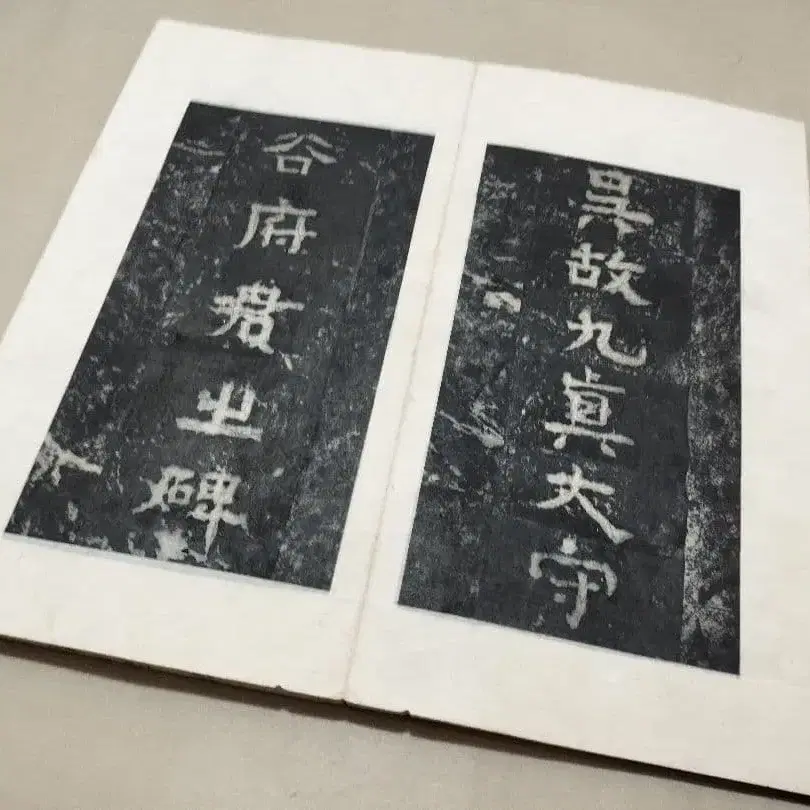 吳故九真太守
谷府君之碑